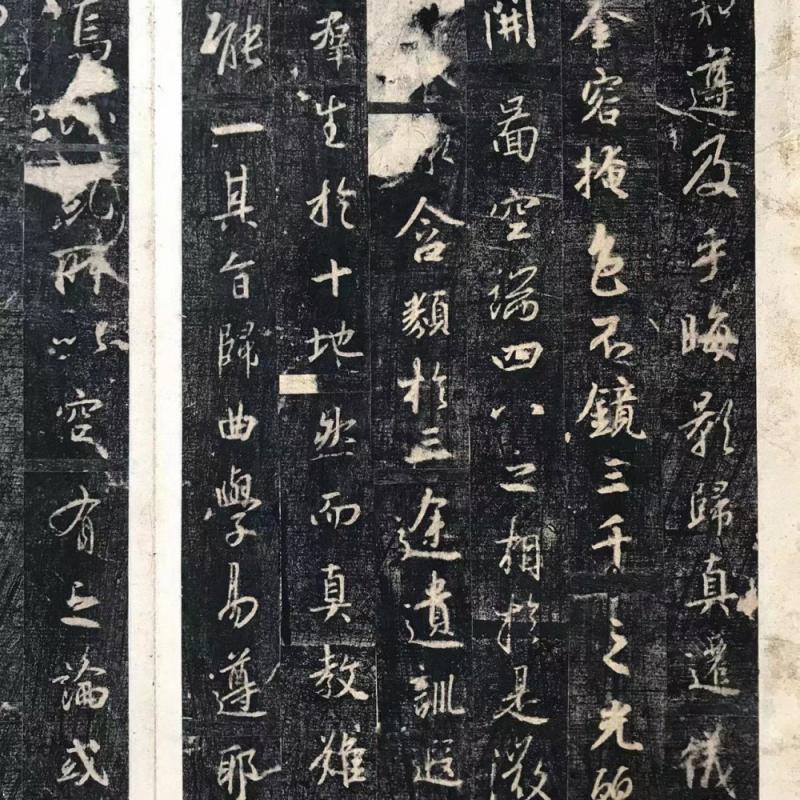 遵及乎晦影歸真遷儀
金容掩色不鏡三千之光
開啚空端四八之相於是微
含類於三途遺訓遐
羣生於十地然而真教難
能一其旨歸曲學易遵耶
焉糺所以空有之論或